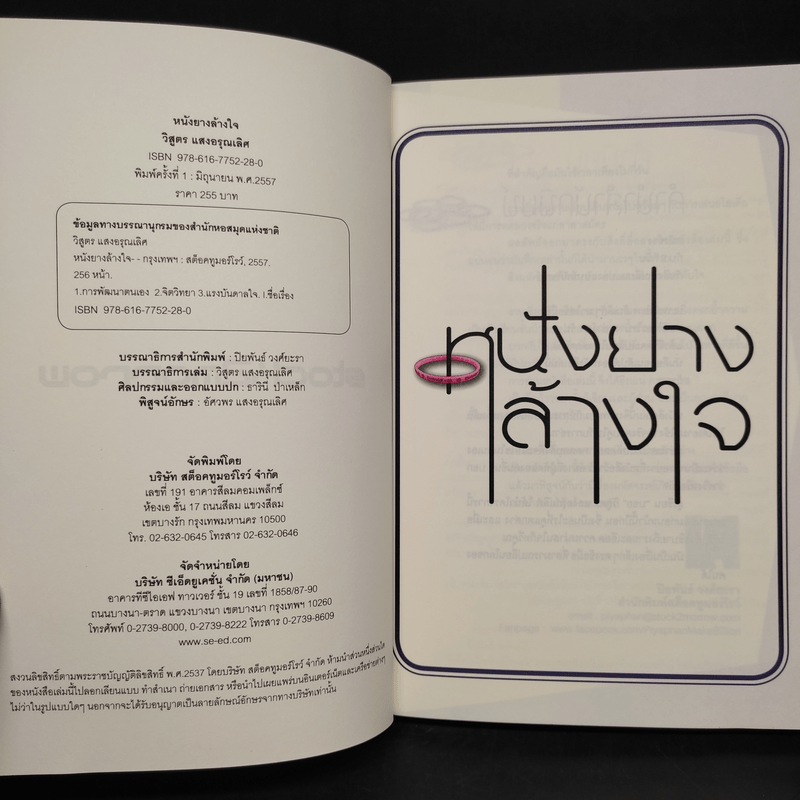 หนังยางล้างใจ
วิสูตร แสงอรุณเลิศ
ISBN 978-616-7752-28-0
พิมพ์ครั้งที่ 1 : มิถุนายน พ.ศ.2557
ราคา 255 บาท
ข้อมูลทางบรรณานุกรมของสำนักหอสมุดแห่งชาติ
วิสูตร แสงอรุณเลิศ
หนังยางล้างใจ- - กรุงเทพฯ : สต็อคทูมอร์โรว์, 2557.
256 หน้า.
1.การพัฒนาตนเอง 2.จิตวิทยา 3.แรงบันดาลใจ. I.ชื่อเรื่อง
ISBN 978-616-7752-28-0
บรรณาธิการสำนักพิมพ์ : ปิยพันธ์ วงศ์ยะรา
บรรณาธิการเล่ม : วิสูตร แสงอรุณเลิศ
ศิลปกรรมและออกแบบปก : ธารินี ป่าเหล็ก
พิสูจน์อักษร : อัศวพร แสงอรุณเลิศ
จัดพิมพ์โดย
บริษัท สต็อคทูมอร์โรว์ จำกัด
เลขที่ 191 อาคารสีลมคอมเพล็กซ์
ห้องเอ ชั้น 17 ถนนสีลม แขวงสีลม
เขตบางรัก กรุงเทพมหานคร 10500
โทร. 02-632-0645 โทรสาร 02-632-0646
จัดจำหน่ายโดย
บริษัท ซีเอ็ดยูเคชั่น จำกัด (มหาชน)
อาคารทีซีไอเอฟ ทาวเวอร์ ชั้น 19 เลขที่ 1858/87-90
ถนนบางนา-ตราด แขวงบางนา เขตบางนา กรุงเทพฯ 10260
โทรศัพท์ 0-2739-8000, 0-2739-8222 โทรสาร 0-2739-8609
www.se-ed.com
สงวนลิขสิทธิ์ตามพระราชบัญญัติลิขสิทธิ์ พ.ศ.2537 โดยบริษัท สต็อคทูมอร์โรว์ จำกัด ห้ามนำส่วนหนึ่งส่วนใด
ของหนังสือเล่มนี้ไปลอกเลียนแบบ ทำสำเนา ถ่ายเอกสาร หรือนำไปเผยแพร่บนอินเตอร์เน็ตและเครือข่ายต่างๆ
ไม่ว่าในรูปแบบใดๆ นอกจากจะได้รับอนุญาตเป็นลายลักษณ์อักษรจากทางบริษัทเท่านั้น
หนังยาง
ล้างใจ